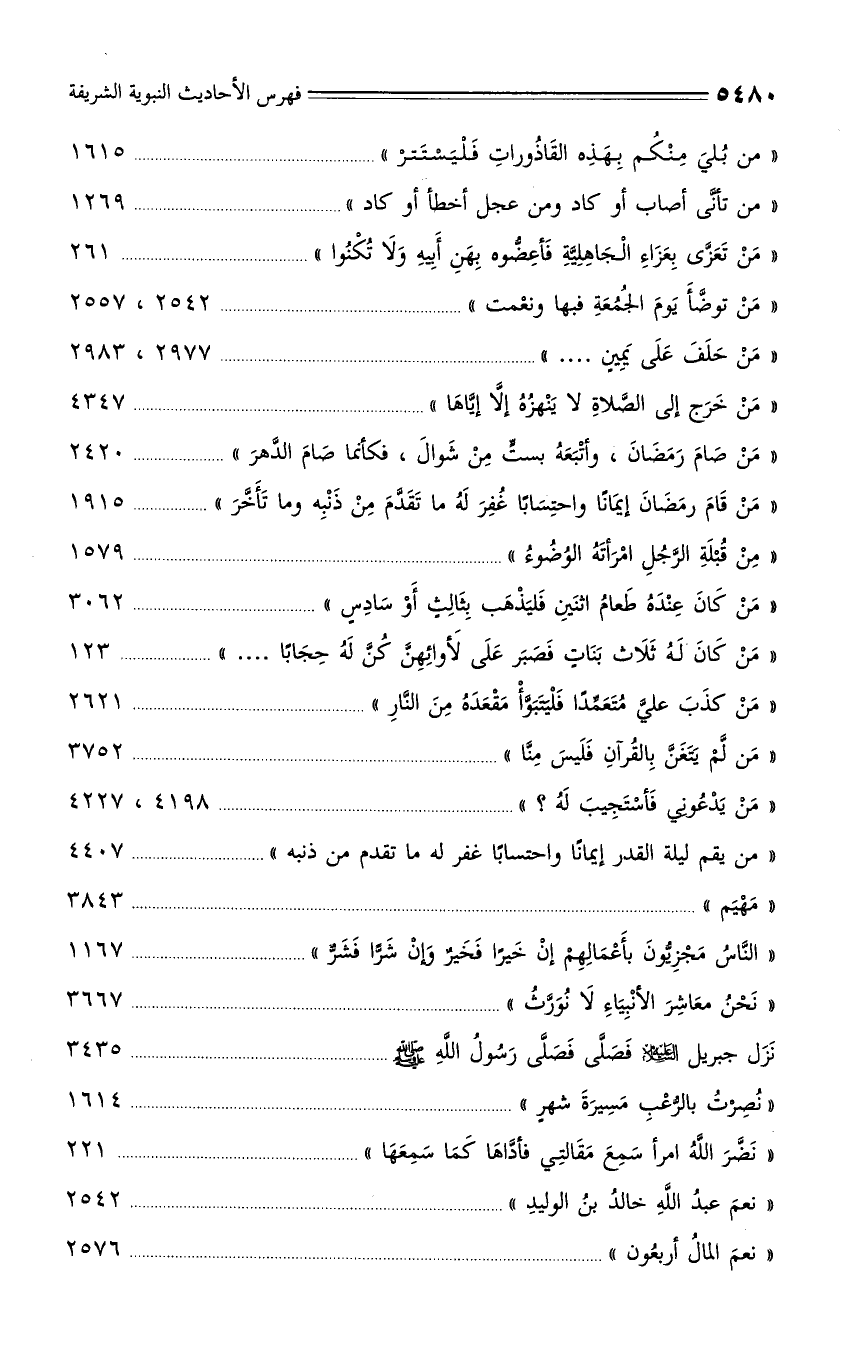 ٥٤٨٠ فهرس الأحاديث النبوية الشريفة
« من بُليَ مِنْكُم بِهَذِه القَاذُوراتِ فَلْيَسْتَتِرْ » ١٦١٥
« من تأنَّى أصاب أو كاد ومن عجل أخطأ أو كاد » ١٢٦٩
« مَنْ تَعَزَّى بِعَزَاءِ الْجَاهِلِيَّةِ فَأعِضُّوه بِهَنِ أَبِيهِ وَلَا تُكْنُوا » ٢٦١
« مَنْ توضَّأَ يَومَ الجُمُعَةِ فبها ونعْمت » ٢٥٤٢ ، ٢٥٥٧
« مَنْ حَلَفَ عَلَى يَمِينٍ .... » ٢٩٧٧ ، ٢٩٨٣
« مَنْ خَرَج إلى الصَّلاةِ لا يَنْهزُهُ إلَّا إيَّاهَا » ٤٣٤٧
« مَنْ صَامَ رَمَضَانَ ، وأتْبَعَهُ بستٍّ مِنْ شَوالَ ، فكأنما صَامَ الدَّهرَ » ٢٤٢٠
« مَنْ قَامَ رمَضَانَ إيمَانًا واحتِسَابًا غُفِرَ لَهُ ما تَقَدَّمَ مِنْ ذَنْبِه وما تَأَخَّرَ » ١٩١٥
« مِنْ قُبْلَةِ الرَّجُلِ امْرَأتَهُ الوُضُوءُ » ١٥٧٩
« مَنْ كَانَ عِنْدَهُ طَعامُ اثنَينِ فَليَذْهَب بِثَالِثٍ أَوْ سَادِسٍ » ٣٠٦٢
« مَنْ كَانَ لَهُ ثَلَاث بَنَاتٍ فَصَبَر عَلَى لَأوائِهِنَّ كُنَّ لَهُ حِجَابًا .... » ١٢٣
« مَنْ كذَبَ عليَّ مُتَعَمِّدًا فَلْيَتَبَوَّأْ مَقْعَدَهُ مِنَ النَّارِ » ٢٦٢١
« مَن لَّمْ يَتَغَنَّ بِالقُرآنِ فَلَيسَ مِنَّا » ٣٧٥٢
« مَنْ يَدْعُونِي فَأسْتَجِيبَ لَهُ ؟ » ٤١٩٨ ، ٤٢٢٧
« من يقم ليلة القدر إيمانًا واحتسابًا غفر له ما تقدم من ذنبه » ٤٤٠٧
« مَهْيَم » ٣٨٤٣
« النَّاسُ مَجْزِيُّونَ بأَعْمَالِهِمْ إنْ خَيرًا فَخَيرٌ وَإنْ شَرًّا فَشَرٌّ » ١١٦٧
« نَحْنُ معَاشِرَ الأنْبِيَاءِ لَا نُوَرَّثُ » ٣٦٦٧
نَزَل جبريل عليه السلام فَصَلَّى فَصَلَّى رَسُولُ اللَّهِ ﷺ ٣٤٣٥
« نُصِرْتُ بالرُّعْبِ مَسِيرَةَ شهرٍ » ١٦١٤
« نَضَّرَ اللَّهُ امرأ سَمِعَ مَقَالتِي فأدَّاهَا كَمَا سَمِعَهَا » ٢٢١
« نعمَ عبدُ اللَّهِ خالدُ بنُ الوليدِ » ٢٥٤٢
« نعمَ المالُ أربعُون » ٢٥٧٦